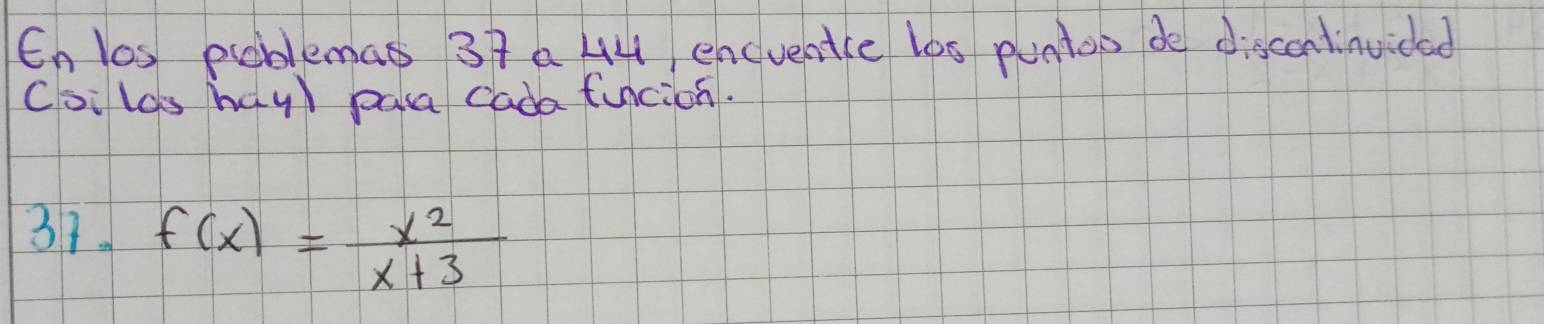 En los problemas 37 a 44, encuentre los puntos de discontinuidad
(si los hay) para cada función.
37. f(x) = x²/x+3